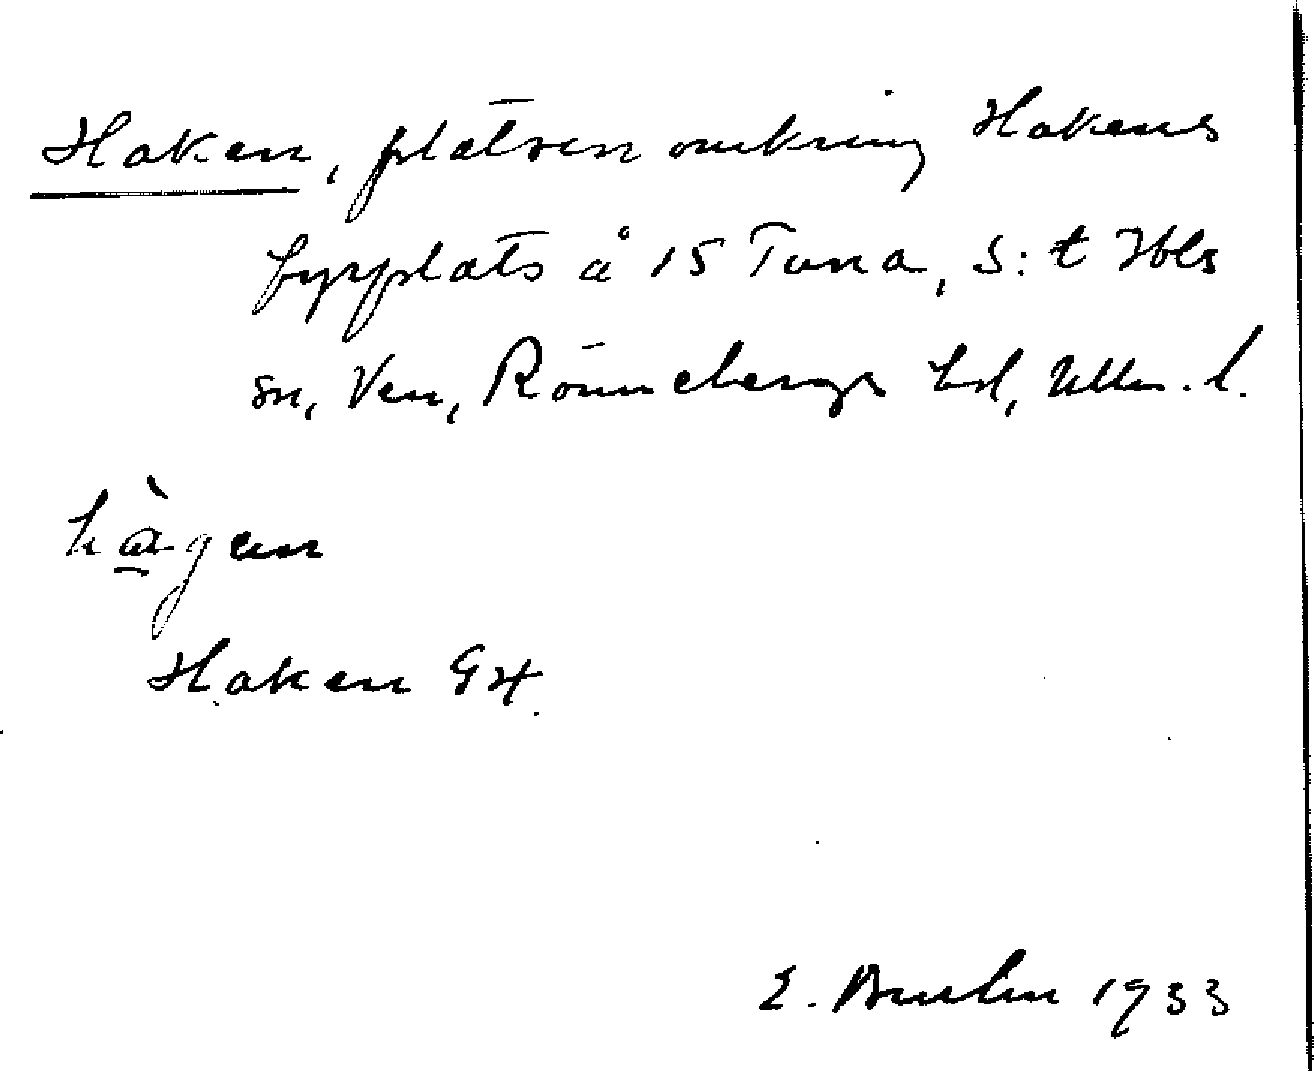 Haken, platsen omkring Hakens
fyrplats å 15 Tuna, S:t Ibbs
sn, Ven, Rönnebergs hd, Mlm. l.
hà̱gen
Haken GK
E. Bruhn 1933